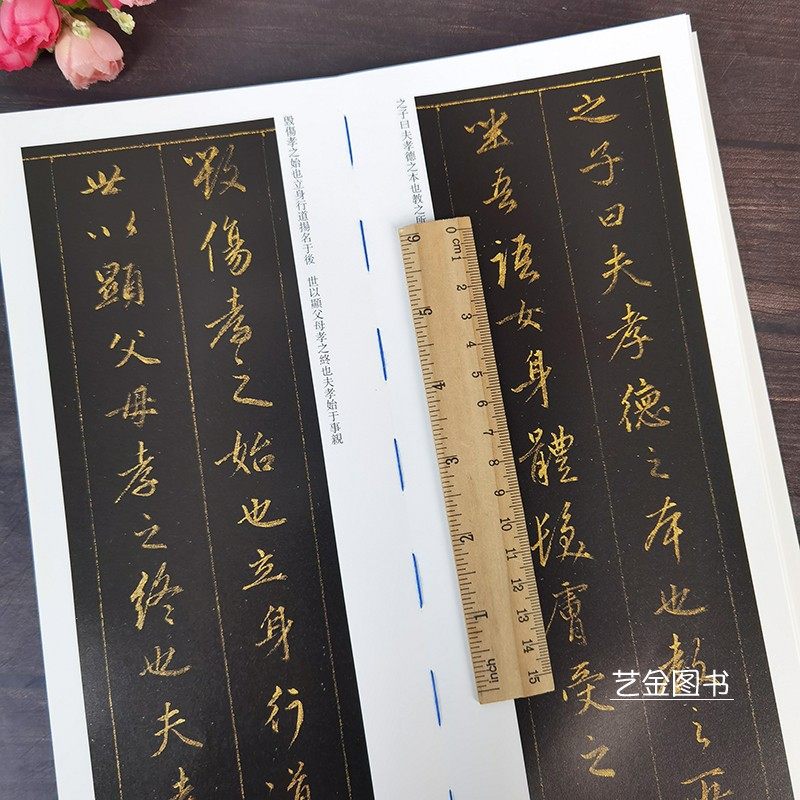 之子曰夫孝德之本也教之所
坐吾語女身體髮膚受之
之子曰夫孝德之本也教之所
毀傷孝之始也立身行道
世以顯父母孝之終也夫孝
毀傷孝之始也立身行道揚名于後 世以顯父母孝之終也夫孝始于事親
0 cm1 2 3 4 5 6 7 8 9 10 11 12 13 14 15
6 5 4 3 2 1 inch
艺金图书